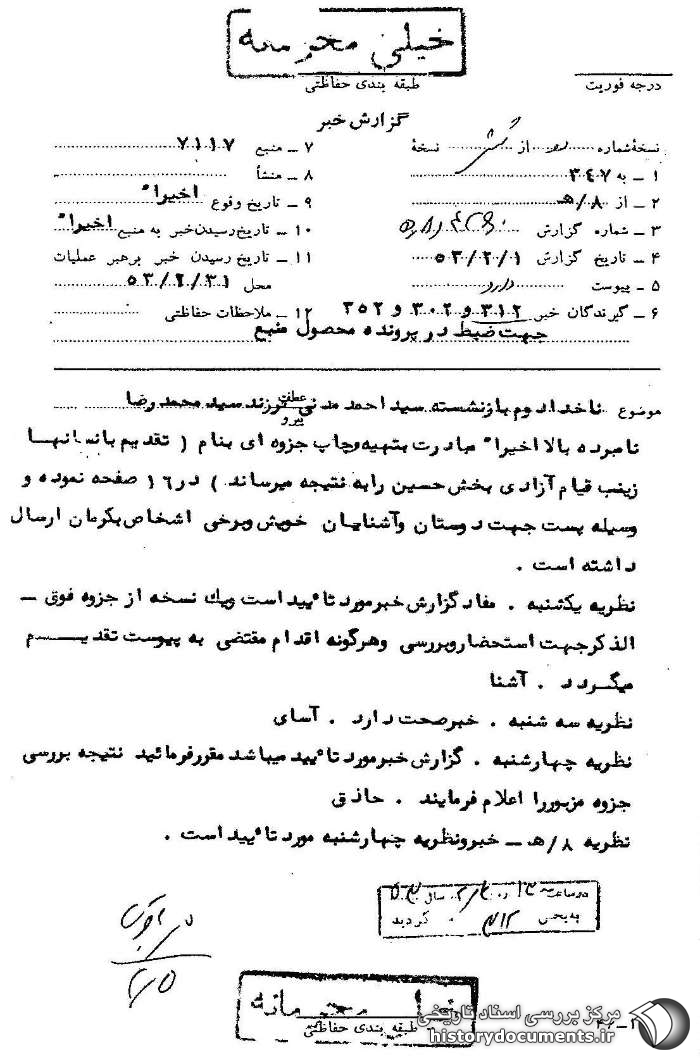 خیلی محرمانه
طبقه بندی حفاظتی
درجه فوریت
گزارش خبر
نسخهٔ شماره از نسخهٔ
۱ ـ به ۳۴۷
۲ ـ از ۸/هـ
۳ ـ شماره گزارش
۴ ـ تاریخ گزارش ۵۳/۲/۱
۵ ـ پیوست دارد
۶ ـ گیرندگان خبر ۳۱۲ و ۳۰۲ و ۳۵۲
۷ ـ منبع ۷۱۱۷
۸ ـ منشأ
۹ ـ تاریخ وقوع اخیراً
۱۰ ـ تاریخ رسیدن خبر به منبع اخیراً
۱۱ ـ تاریخ رسیدن خبر برهبر عملیات
محل ۵۳/۶/۳۱
۱۲ ـ ملاحظات حفاظتی
جهت ضبط در پرونده محصول منبع
موضوع ناخدادوم بازنشسته سیداحمد مدنی فرزند سیدمحمدرضا
عطف
پیرو
نامبرده بالا اخیراً مبادرت بتهیه وچاپ جزوه ای بنام ( تقدیم بانسانها
زینب قیام آزادی بخش حسین رابه نتیجه میرساند ) در ۱۶ صفحه نموده و
وسیله پست جهت دوستان وآشنایان خویش وبرخی اشخاص بکرمان ارسال
داشته است .
نظریه یکشنبه . مفاد گزارش خبرمورد تأیید است ویك نسخه از جزوه فوق ـ
الذکرجهت استحضاروبررسی وهرگونه اقدام مقتضی به پیوست تقدیـــــم
میگـردد . آشنا
نظریه سه شنبه . خبرصحت دارد . آسای
نظریه چهارشنبه . گزارش خبرمورد تأیید میباشد مقررفرمائید نتیجه بررسی
جزوه مزبوررا اعلام فرمایند . حاذق
نظریه ۸/هـ ـ خبرونظریه چهارشنبه مورد تأیید است .
در ساعت سال ۵۳
به بخش ۳۱۲ گردید
خیلی محرمانه
طبقه بندی حفاظتی
مرکز بررسی اسناد تاریخی
historydocuments.ir